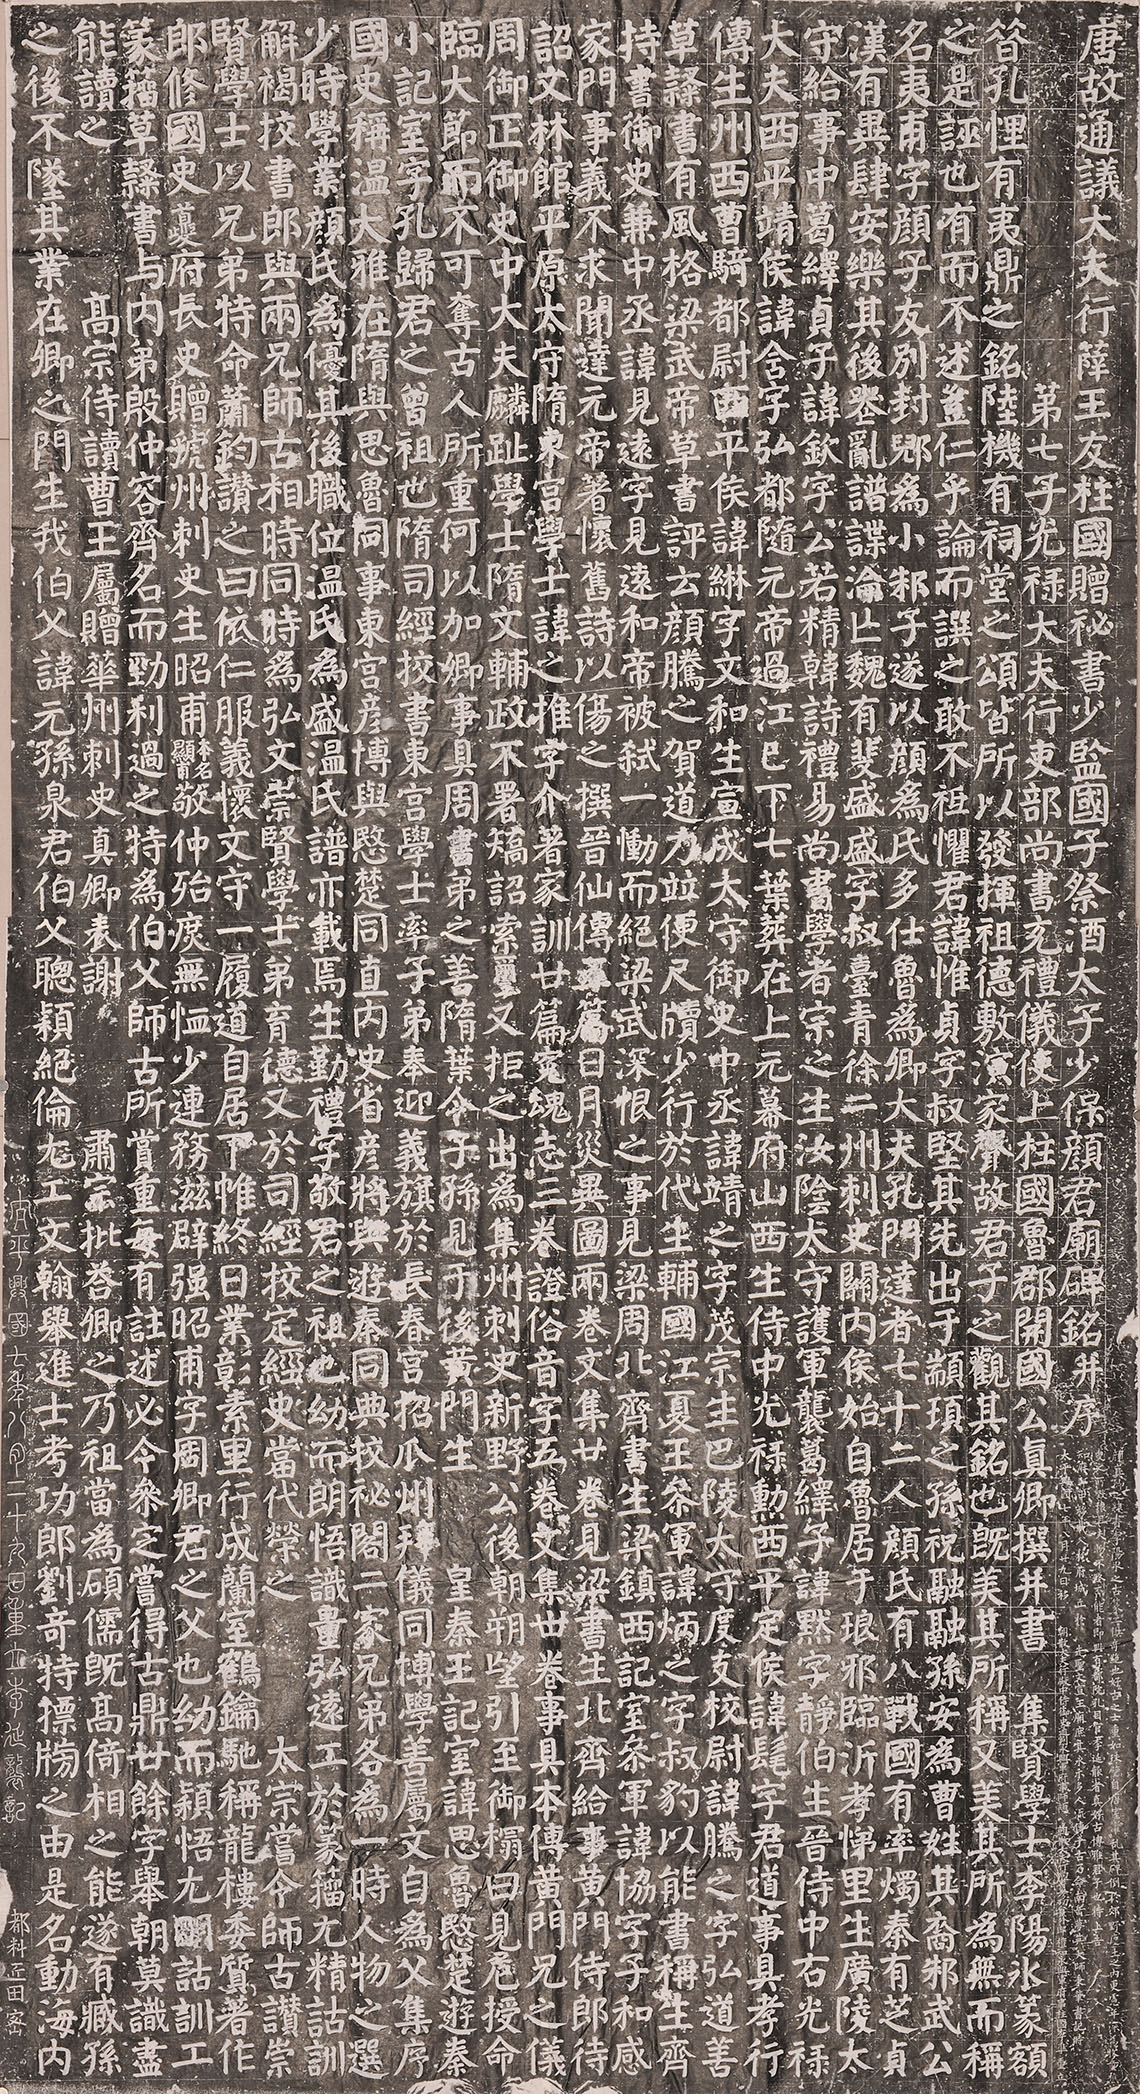 唐故通議大夫行薛王友柱國贈祕書少監國子祭酒太子少保顏君廟碑銘并序
第七子光祿大夫行吏部尚書充禮儀使上柱國魯郡開國公真卿撰并書 集賢學士李陽冰篆額
昝孔悝有夷鼎之銘陸機有祠堂之頌皆所以發揮祖德敷演家聲故君子之觀其銘也旣美其所稱又美其所爲無而稱
之是誣也有而不述豈仁乎論而譔之敢不祗懼君諱惟貞字叔堅其先出于顓頊之孫祝融融孫安爲曹姓其裔邾武公
名夷甫字顏子友別封郳爲小邾子遂以顏爲氏多仕魯爲卿大夫孔門達者七十二人顏氏有八戰國有率燭秦有芝貞
漢有異肆安樂其後喪亂譜諜淪亡魏有斐盛盛字叔臺青徐二州刺史關內侯始自魯居于琅邪臨沂孝悌里生廣陵太
守給事中葛繹貞子諱欽字公若精韓詩禮易尚書學者宗之生汝陰太守護軍襲葛繹子諱默字靜伯生晉侍中右光祿
大夫西平靖侯諱含字弘都隨元帝過江已下七葉葬在上元幕府山西生侍中光祿勳西平定侯諱髦字君道事具孝行
傳生州西曹騎都尉西平侯諱綝字文和生宣成太守御史中丞諱靖之字茂宗生巴陵太守度支校尉諱騰之字弘道善
草隸書有風格梁武帝草書評云顏騰之賀道力竝便尺牘少行於代生輔國江夏王參軍諱炳之字叔豹以能書稱生齊
持書御史兼中丞諱見遠字見遠和帝被弑一慟而絕梁武深恨之事見梁周北齊書生梁鎮西記室參軍諱協字子和感
家門事義不求聞達元帝著懷舊詩以傷之撰晉仙傳五篇日月災異圖兩卷文集廿卷見梁書生北齊給事黃門侍郎待
詔文林館平原太守隋東宮學士諱之推字介著家訓廿篇冤魂志三卷證俗音字五卷文集卅卷事具本傳黃門兄之儀
周御正御史中大夫麟趾學士隋文輔政不署矯詔索璽又拒之出爲集州刺史新野公後朝朔望引至御榻曰見危授命
臨大節而不可奪古人所重何以加卿事具周書弟之善隋葉令子孫見于後黃門生 皇秦王記室諱思魯愍楚遊秦
小記室字孔歸君之曾祖也隋司經挍書東宮學士率子弟奉迎義旗於長春宮招瓜州拜儀同博學善屬文自爲父集序
國史稱溫大雅在隋與思魯同事東宮彥博與愍楚同直內史省彥將與遊秦同典挍祕閣二家兄弟各爲一時人物之選
少時學業顏氏爲優其後職位溫氏爲盛溫氏譜亦載焉生勤禮字敬君之祖也幼而朗悟識量弘遠工於篆籀尤精詁訓
解褐挍書郎與兩兄師古相時同時爲弘文崇賢學士弟育德又於司經挍定經史當代榮之 太宗嘗令師古讚崇
賢學士以兄弟特命蕭鈞讚之曰依仁服義懷文守一履道自居下帷終日業彰素里行成蘭室鶴鑰馳稱龍樓委質著作
郎修國史夔府長史贈虢州刺史生昭甫本名顯甫敬仲殆庶無恤少連務滋辟强昭甫字周卿君之父也幼而穎悟尤明詁訓工
篆籀草隸書与內弟殷仲容齊名而勁利過之特爲伯父師古所賞重每有註述必令參定嘗得古鼎廿餘字舉朝莫識盡
能讀之 高宗侍讀曹王屬贈華州刺史真卿表謝 肅宗批荅卿之乃祖當爲碩儒旣高倚相之能遂有臧孫
之後不墜其業在卿之門生我伯父諱元孫泉君伯父聰穎絕倫尤工文翰舉進士考功郎劉奇特摽牓之由是名動海內
太平興國七年八月二十九日重立李延襲記 都料匠田密